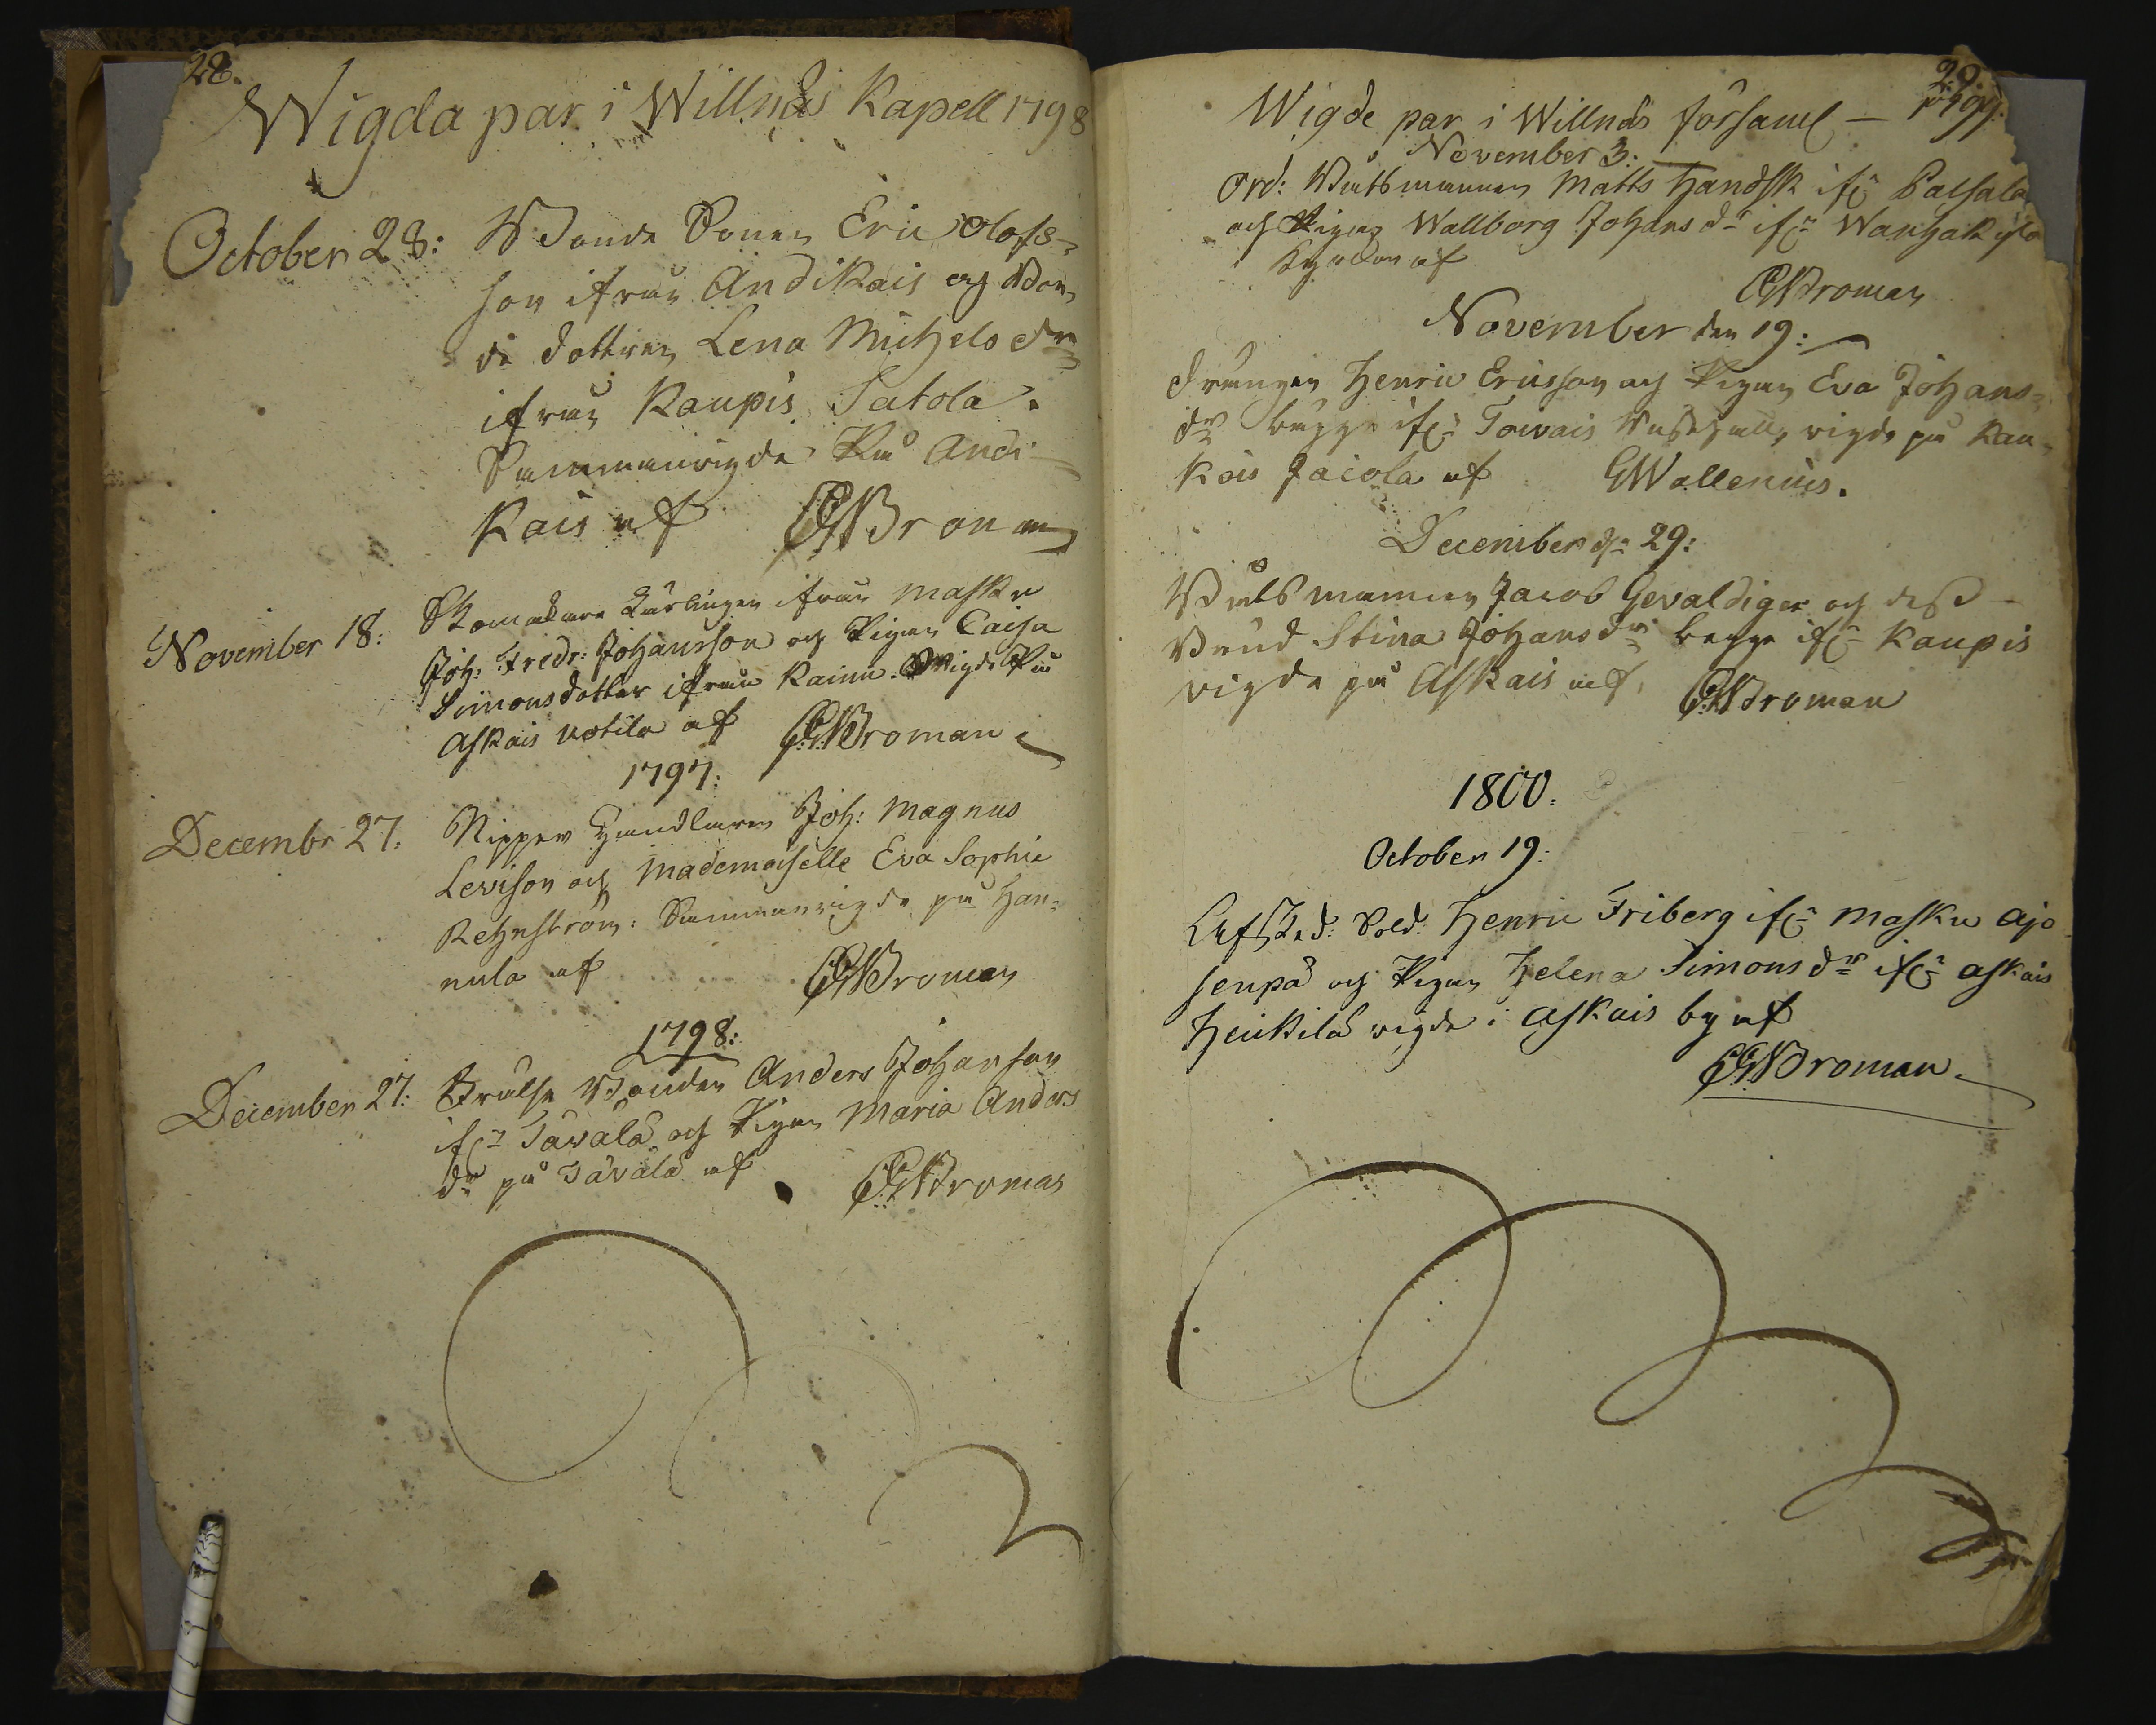 28.
Wigda par i Willnäs Kapell 1798
October 28:
Bonde Sonen Eric Olofs=
son ifrån Andikais och Bon=
de dottren Lena Michelsdr
ifrån Kaupis Satola.
Sammanvigde På Andi=
kais af CGBroman
November 18:
Skomakare Lärlingen ifrån Masku
Joh: Fredr: Johansson och Pigan Caisa
Simonsdotter ifrån Kainu. Wigde På
Askais Uotila af CGBroman
1797:
Decembr 27.
Nipper Handlaren Joh: Magnus
Levison och Mademoiselle Eva Sophie
Rehnström: Sammanvigde på Han=
nula af CGBroman
1798:
December 27:
Frälse Bonden Anders Johanson
ifrn Tävälä och Pigan Maria Anders
dr på Tävälä af CGBroman
29.
Wigde par i Willnäs församl — 1799.
November 3:
Ord: Båtsmannen Matts Handsk ifrn Palsala
och Pigan Wallborg Johansdr ifrn Wanhakylä
Kyrckan af
CGBroman
November den 19:
Drängen Henric Ericsson och Pigan Eva Johans=
dr begge ifrn Towais vigde på Kan=
kais Jacola af GWallenius.
December dn 29:
Båtsmannen Jacob Gevaldiger och dess
Brud Stina Johansdr begge ifrn Kaupis
vigde på Askais af CGBroman
1800.
October 19:
Afsked: Sold: Henric Friberg ifrn Masku Ajo
senpä och Pigan Helena Simonsdr ifrn Askais
Heikilä vigde i Askais by af
CGBroman